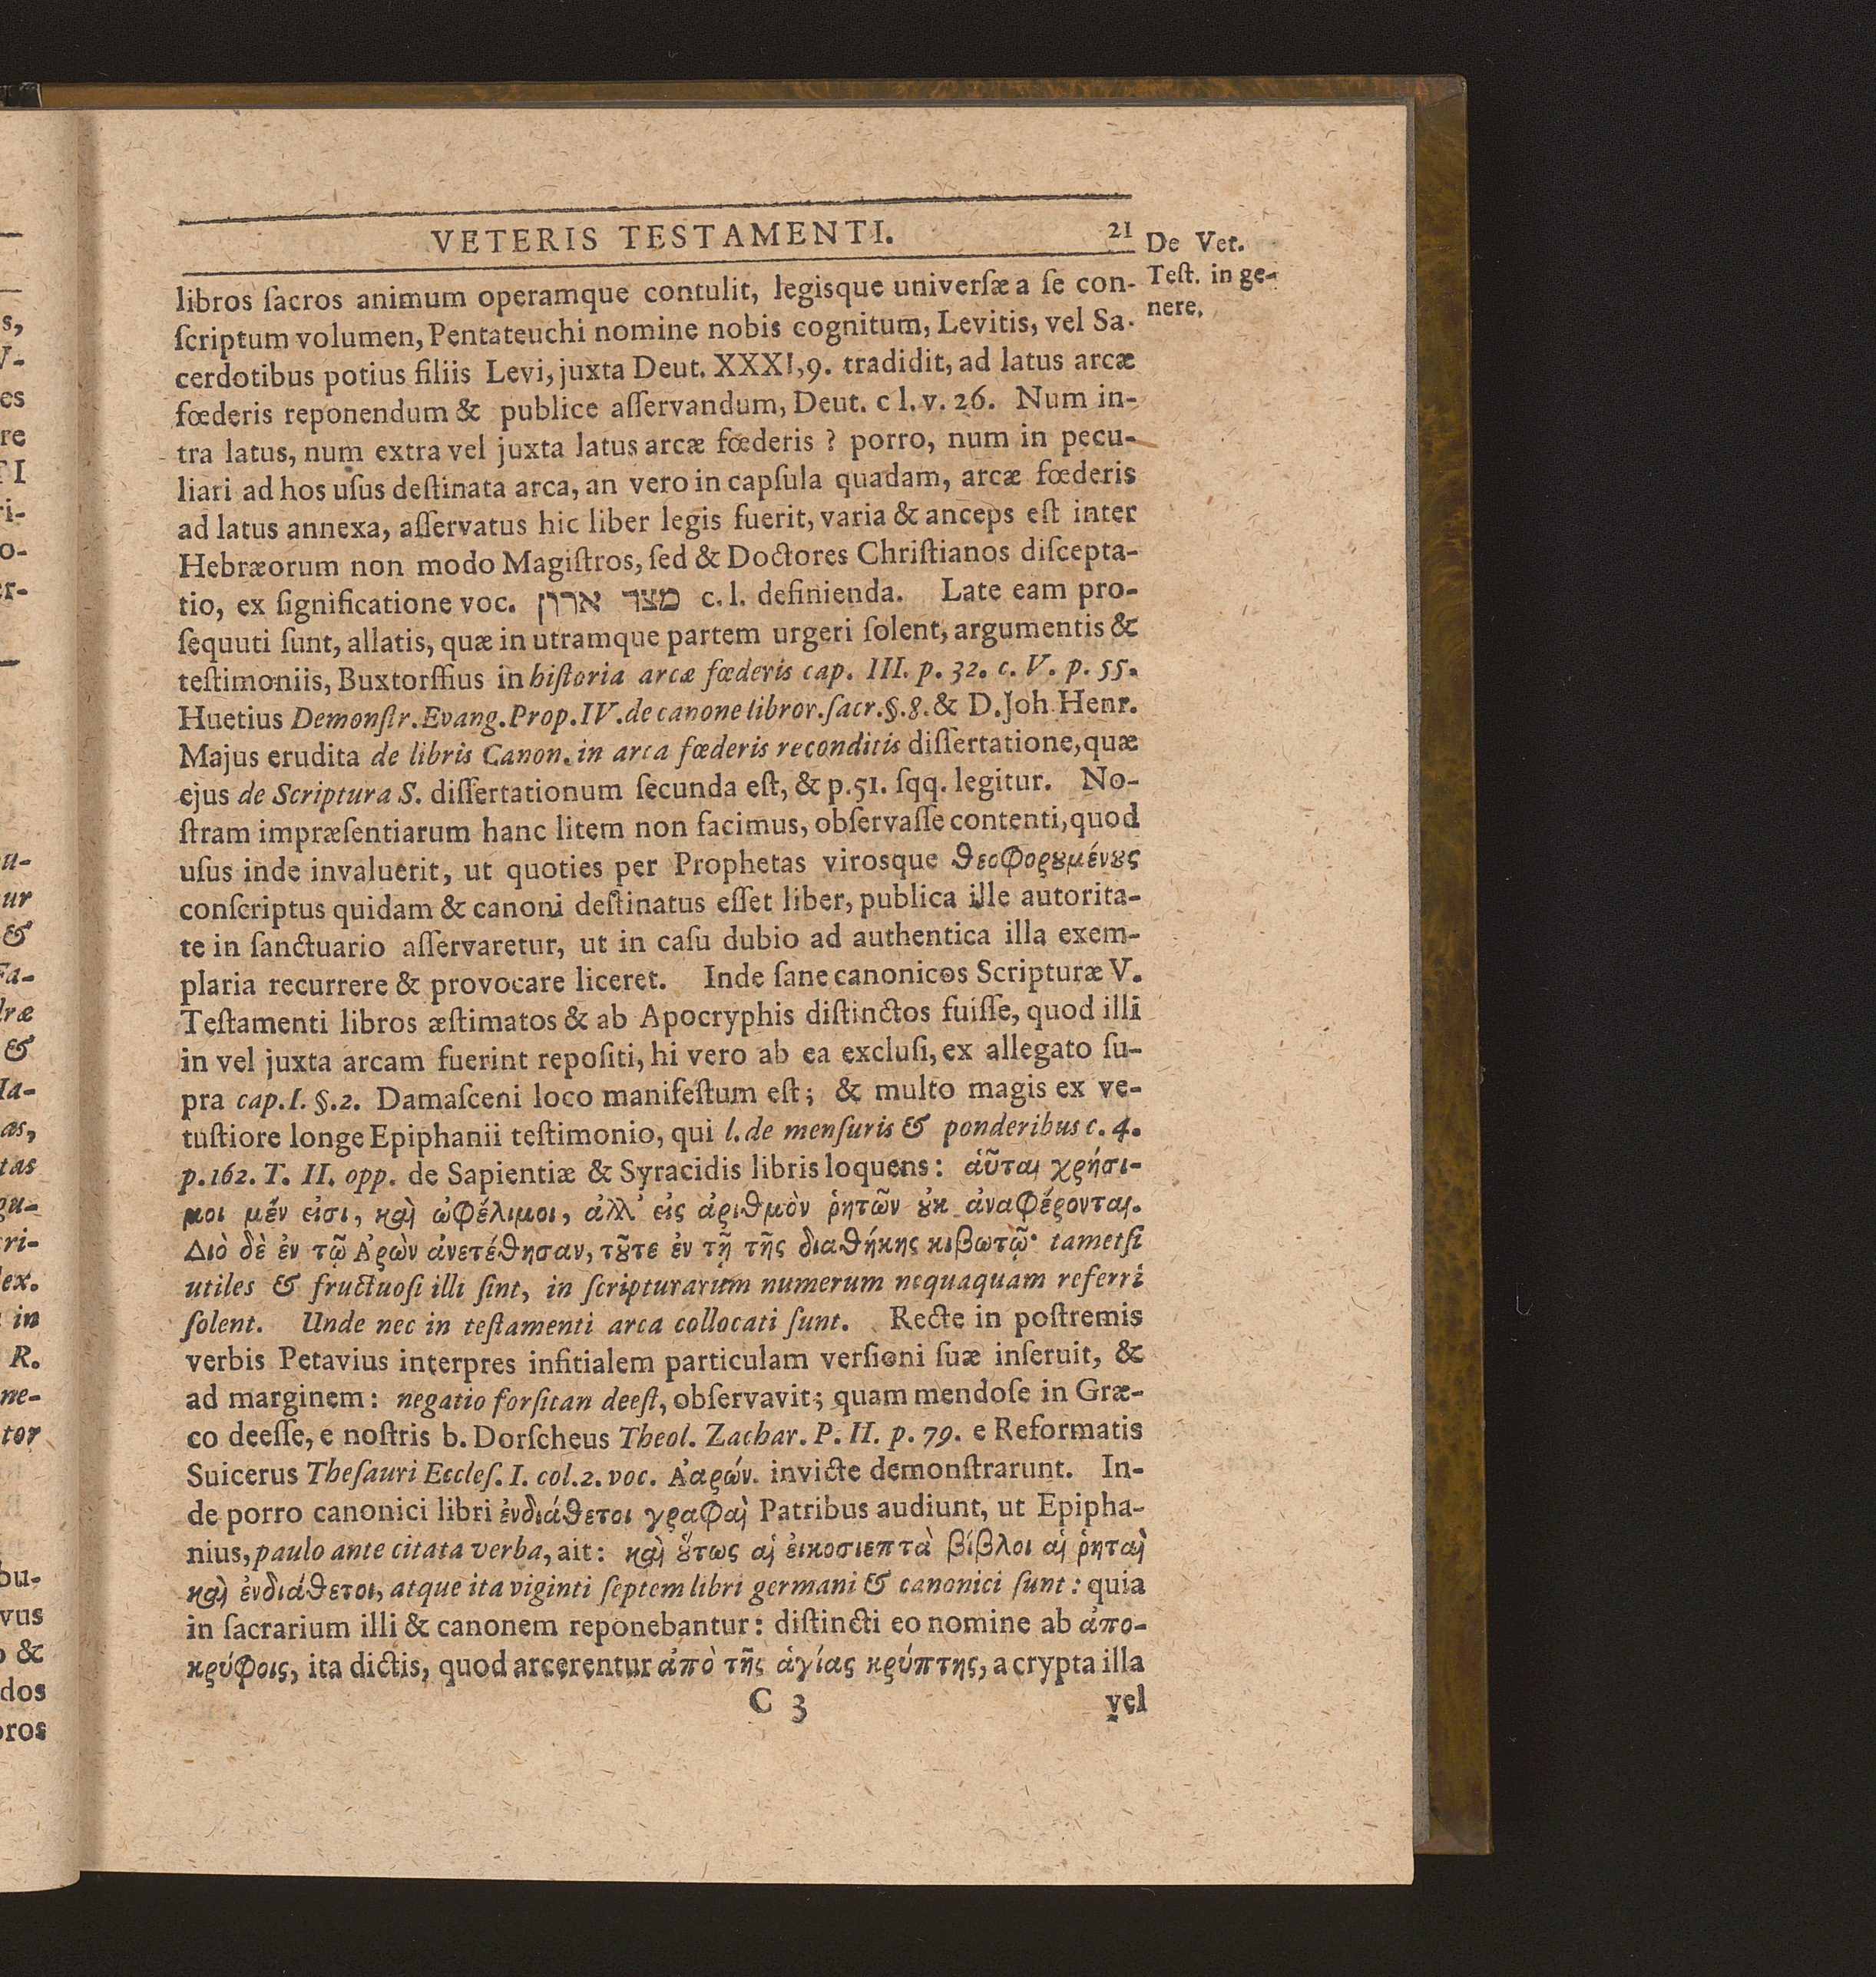 VETERIS TESTAMENTI. 21
De Vet.
Teſt. in ge-
nere.
libros ſacros animum operamque contulit, legisque univerſæ a ſe con-
ſcriptum volumen, Pentateuchi nomine nobis cognitum, Levitis, vel Sa-
cerdotibus potius filiis Levi, juxta Deut. XXXI,9. tradidit, ad latus arcæ
fœderis reponendum & publice aſſervandum, Deut. c l. v. 26. Num in-
tra latus, num extra vel juxta latus arcæ fœderis ? porro, num in pecu-
liari ad hos uſus deſtinata arca, an vero in capſula quadam, arcæ fœderis
ad latus annexa, aſſervatus hic liber legis fuerit, varia & anceps eſt inter
Hebræorum non modo Magiſtros, ſed & Doctores Chriſtianos diſcepta-
tio, ex ſignificatione voc. מצד ארון c. l. definienda. Late eam pro-
ſequuti ſunt, allatis, quæ in utramque partem urgeri ſolent, argumentis &
teſtimoniis, Buxtorffius in hiſtoria arcæ fœderis cap. III. p. 32. c. V. p. 55.
Huetius Demonſtr. Evang. Prop. IV. de canone libror. ſacr. §. 8. & D. Joh. Henr.
Majus erudita de libris Canon. in arca fœderis reconditis diſſertatione, quæ
ejus de Scriptura S. diſſertationum ſecunda eſt, & p. 51. ſqq. legitur. No-
ſtram impræſentiarum hanc litem non facimus, obſervaſſe contenti, quod
uſus inde invaluerit, ut quoties per Prophetas virosque θεοφορȣμένȣς
conſcriptus quidam & canoni deſtinatus eſſet liber, publica ille autorita-
te in ſanctuario aſſervaretur, ut in caſu dubio ad authentica illa exem-
plaria recurrere & provocare liceret. Inde ſane canonicos Scripturæ V.
Teſtamenti libros æſtimatos & ab Apocryphis diſtinctos fuiſſe, quod illi
in vel juxta arcam fuerint repoſiti, hi vero ab ea excluſi, ex allegato ſu-
pra cap. I. §. 2. Damaſceni loco manifeſtum eſt; & multo magis ex ve-
tuſtiore longe Epiphanii teſtimonio, qui l. de menſuris & ponderibus c. 4.
p. 162. T. II. opp. de Sapientiæ & Syracidis libris loquens: ἀῦται χρήσι-
μοι μέν εἰσι, καὶ ὠφέλιμοι, ἀλλ' εἰς ἀριθμὸν ῥητῶν ȣκ ἀναφέρονται.
Διὸ δὲ ἐν τῷ Ἀρὼν ἀνετέθησαν, τȣ̃τε ἐν τῇ τῆς διαθήκης κιβωτῷ· tametſi
utiles & fructuoſi illi ſint, in ſcripturarum numerum nequaquam referri
ſolent. Unde nec in teſtamenti arca collocati ſunt. Recte in poſtremis
verbis Petavius interpres infitialem particulam verſioni ſuæ inſeruit, &
ad marginem: negatio forſitan deeſt, obſervavit; quam mendoſe in Græ-
co deeſſe, e noſtris b. Dorſcheus Theol. Zachar. P. II. p. 79. e Reformatis
Suicerus Theſauri Eccleſ. I. col. 2. voc. Ἀαρών. invicte demonſtrarunt. In-
de porro canonici libri ἐνδιάθετοι γραφαὶ Patribus audiunt, ut Epipha-
nius, paulo ante citata verba, ait: καὶ ȣ̔́τως αἱ ἐικοσιεπτὰ βίβλοι αἱ ῥηταὶ
καὶ ἐνδιάθετοι, atque ita viginti ſeptem libri germani & canonici ſunt: quia
in ſacrarium illi & canonem reponebantur: diſtincti eo nomine ab ἀπο-
κρύφοις, ita dictis, quod arcerentur ἀπὸ τῆς ἁγίας κρύπτης, a crypta illa
C 3 vel